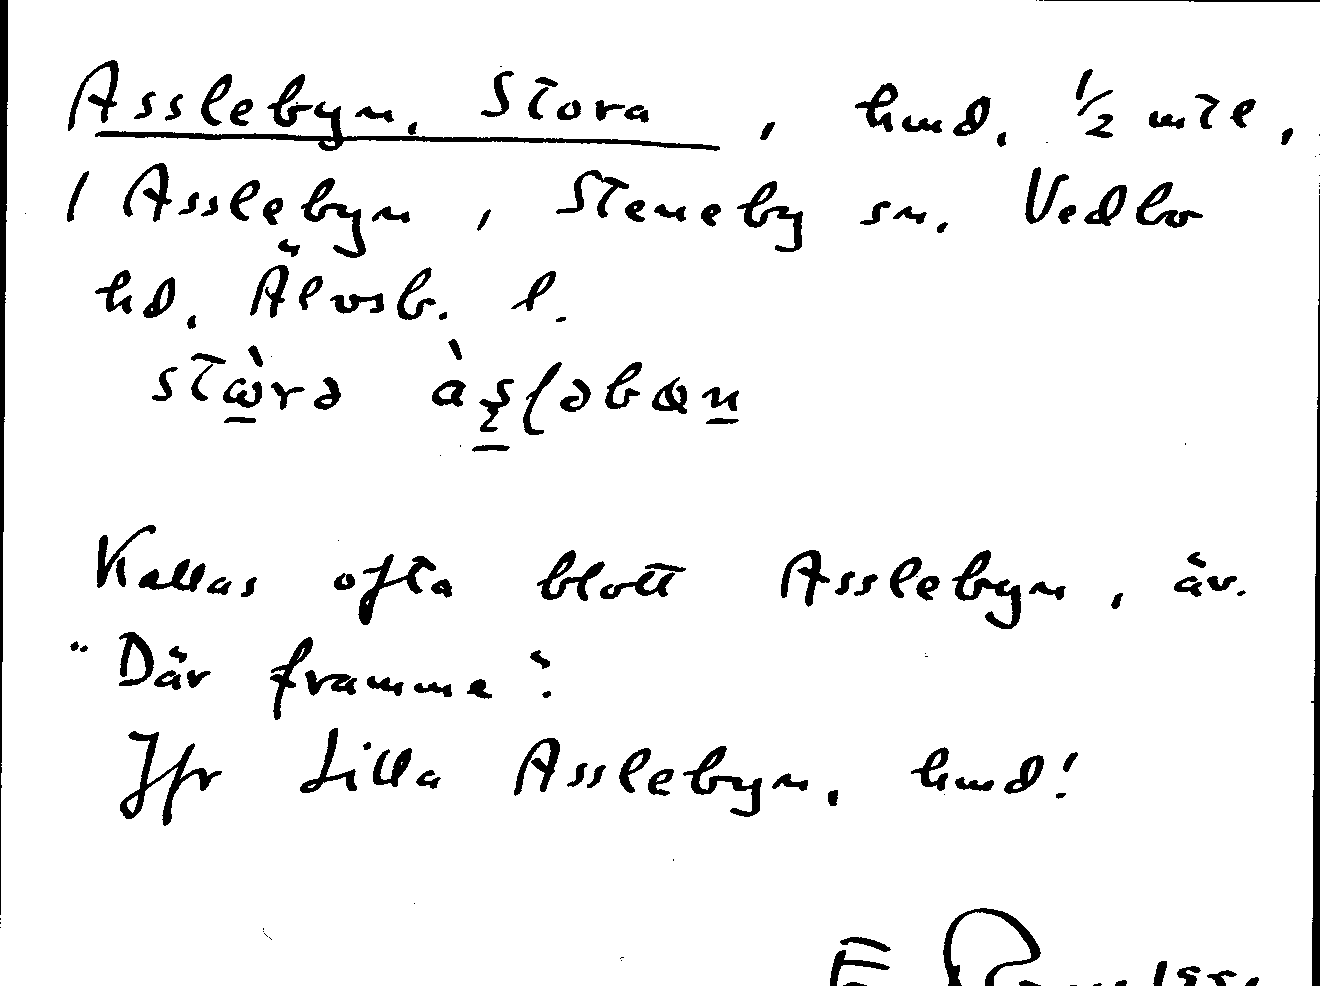 Asslebyn, Stora, hmd. 1/2 mtl,
/ Asslebyn, Steneby sn. Vedbo
hd. Älvsb. l.
stὼrə àsʃəbꭃn
Kallas ofta blott Asslebyn, äv.
"Där framme".
Jfr Lilla Asslebyn, hmd!
E